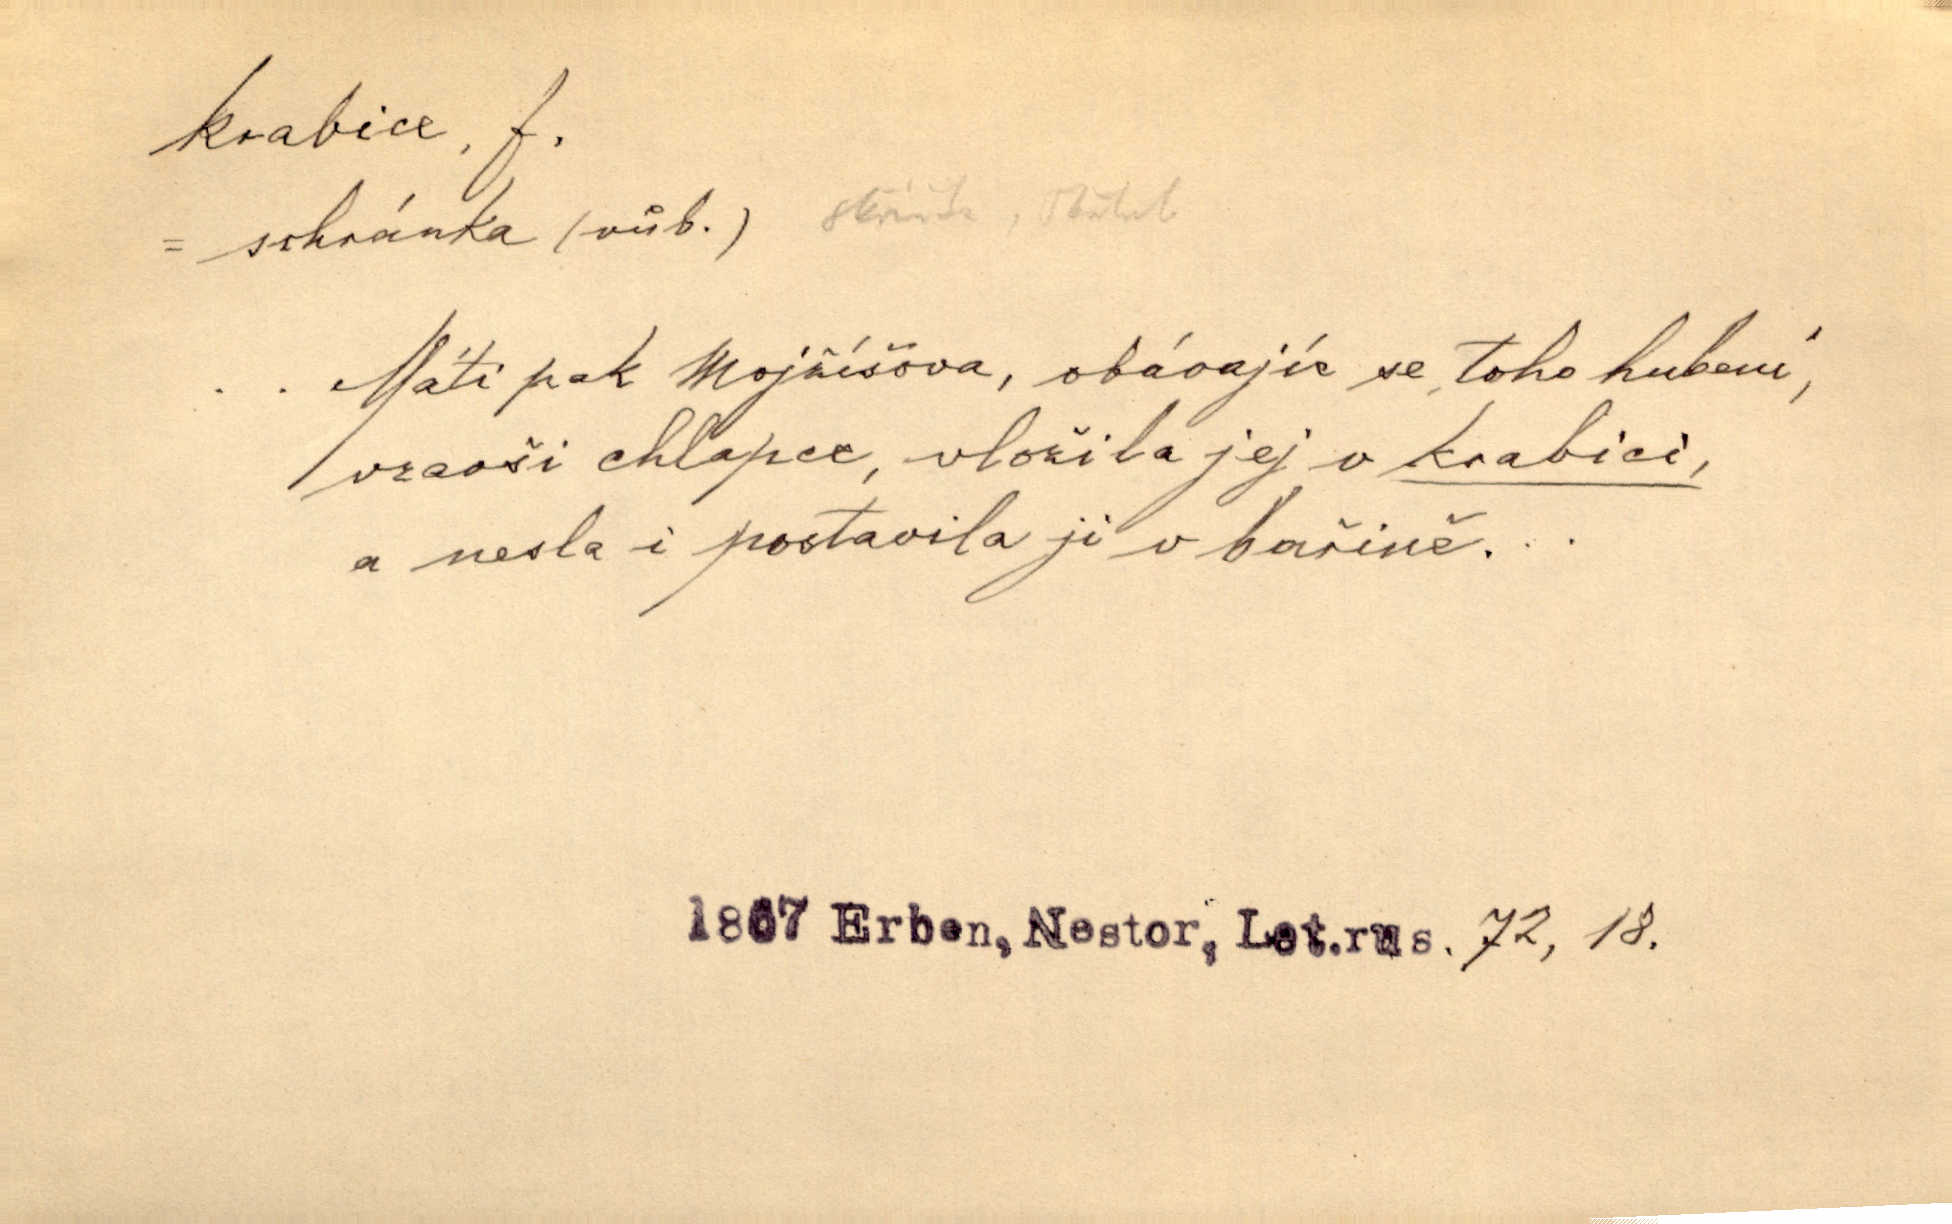 krabice, f.
= schránka (vůb.)
. . Máti pak Mojžíšova, obávajíc se toho hubení,
vzavši chlapce, vložila jej v krabici,
a nesla i postavila ji v bařině. . .
1867 Erben, Nestor, Let.rus. 72, 18.